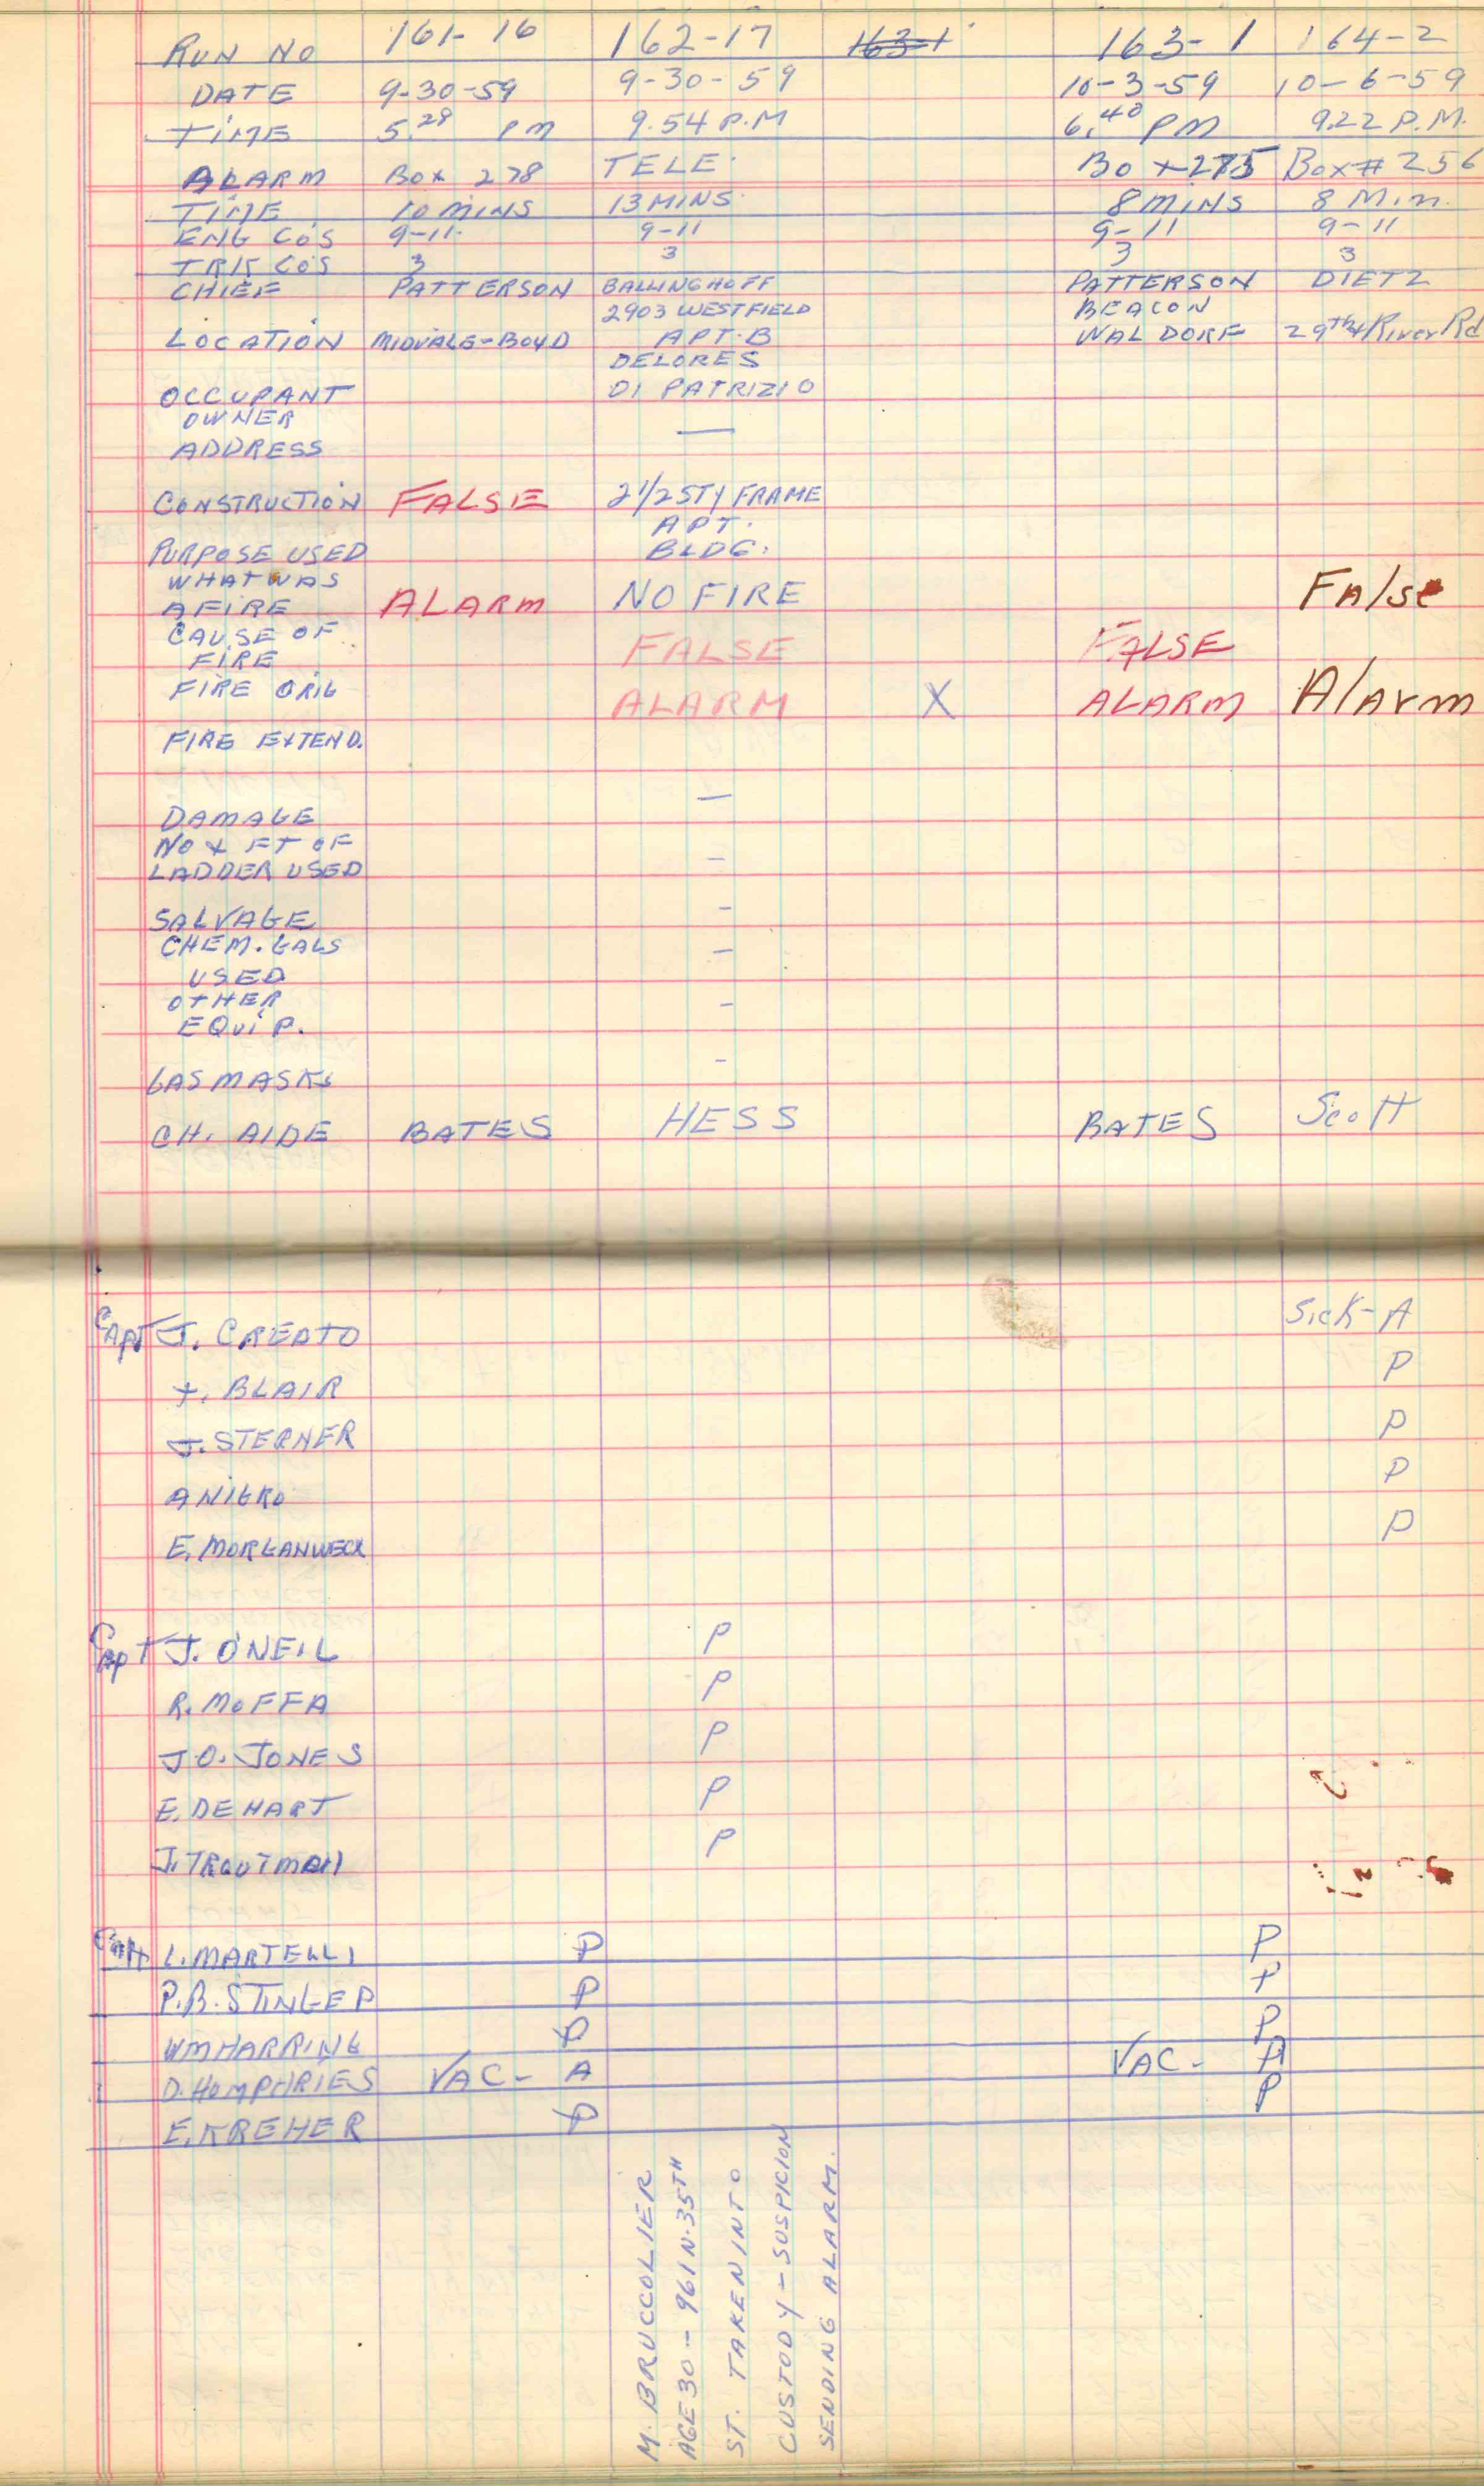 RUN NO 161-16 162-17 163-1 163-1 164-2
DATE 9-30-59 9-30-59 10-3-59 10-6-59
TIME 5.28 PM 9.54 P.M 6.40 PM 9.22 P.M.
ALARM BOX 278 TELE. BOX 275 Box # 256
TIME 10 MINS 13 MINS. 8 MINS 8 Min.
ENG CO'S 9-11. 9-11 9-11 9-11
TRK CO'S 3 3 3 3
CHIEF PATTERSON BALLINGHOFF PATTERSON DIETZ
2903 WESTFIELD BEACON
LOCATION MIDVALE-BOYD APT. B WALDORF 29th & River Rd
DELORES
OCCUPANT DI PATRIZIO
OWNER
ADDRESS —
CONSTRUCTION FALSE 2 1/2 STY FRAME
APT.
PURPOSE USED BLDG.
WHAT WAS
A FIRE ALARM NO FIRE False
CAUSE OF
FIRE FALSE FALSE
FIRE ORIG ALARM X ALARM Alarm
FIRE EXTEND.
—
DAMAGE
NO & FT OF
LADDER USED –
SALVAGE –
CHEM. GALS –
USED
OTHER –
EQUIP.
GAS MASKS –
CH. AIDE BATES HESS BATES Scott
Capt J. CREATO Sick-A
T. BLAIR P
J. STERNER P
A NIGRO P
E. MORGANWECK P
Capt J. O'NEIL P
R. MOFFA P
J.O. JONES P
E. DEHART P
J. TROUTMAN P
Capt L. MARTELLI P P
P.B. STINGER P P
WM HARRING P P
D. HUMPHRIES VAC- A VAC- A
E. KREHER P P
M. BRUCCOLIER
AGE 30 - 961 N. 35TH
ST. TAKEN INTO
CUSTODY - SUSPICION
SENDING ALARM.